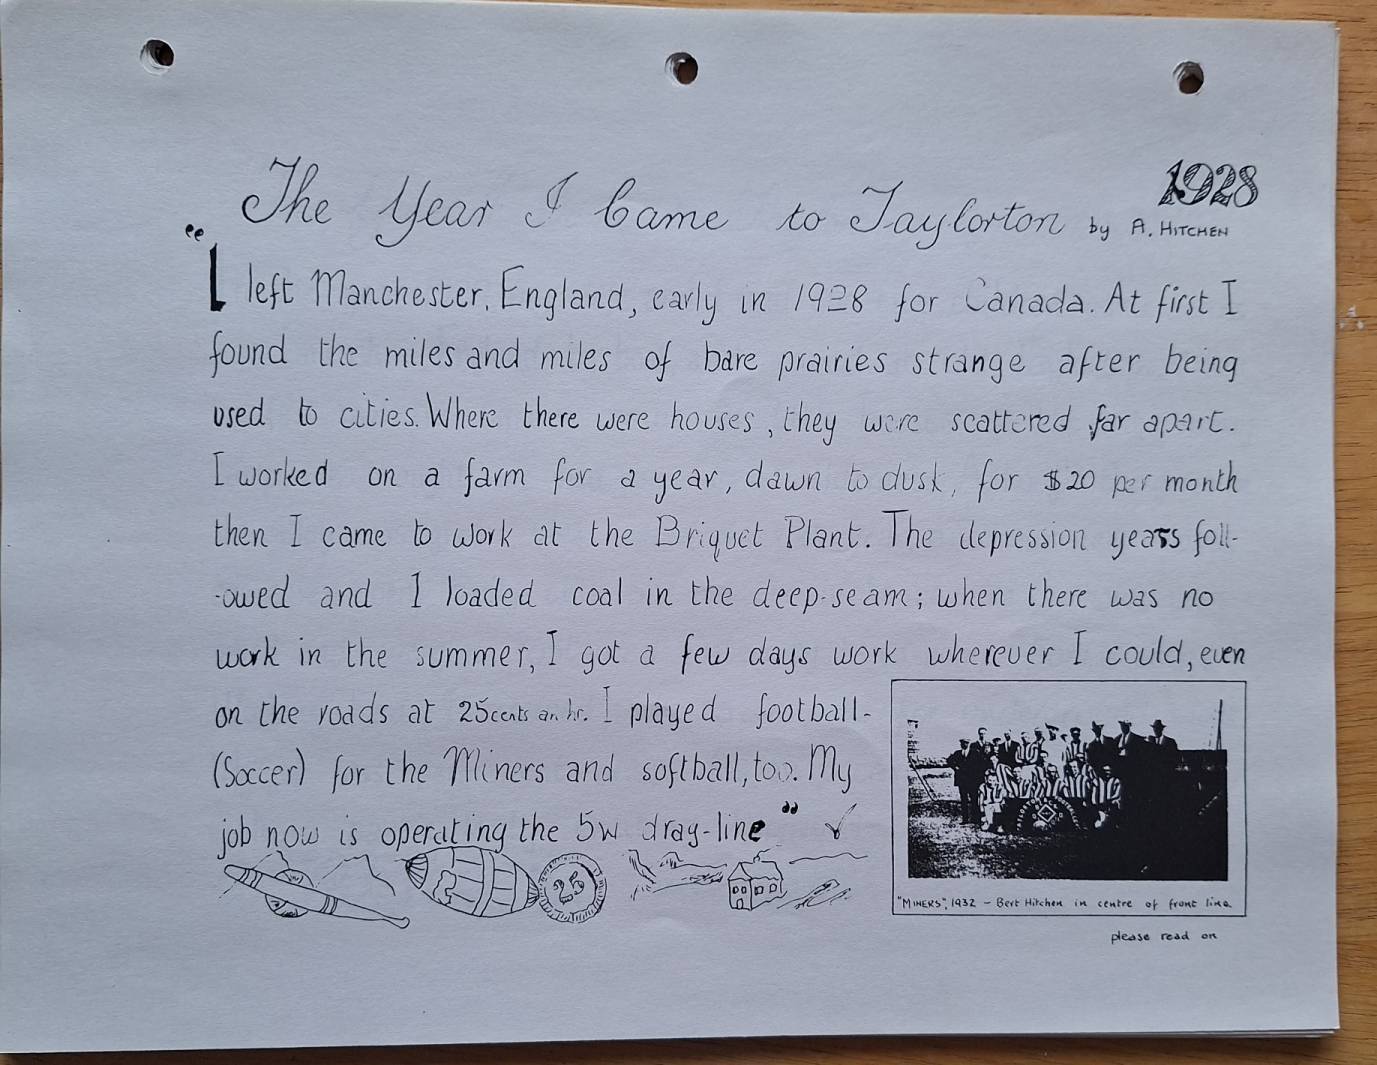 1928
The Year I Came to Taylorton by A. HITCHEN
"I left Manchester, England, early in 1928 for Canada. At first I
found the miles and miles of bare prairies strange after being
used to cities. Where there were houses, they were scattered far apart.
I worked on a farm for a year, dawn to dusk, for $20 per month
then I came to work at the Briquet Plant. The depression years foll-
-owed and I loaded coal in the deep-seam; when there was no
work in the summer, I got a few days work wherever I could, even
on the roads at 25cents an hr. I played football-
(Soccer) for the Miners and softball, too. My
job now is operating the 5w drag-line"
25
"MINERS", 1932 - Bert Hitchen in centre of front line.
please read on